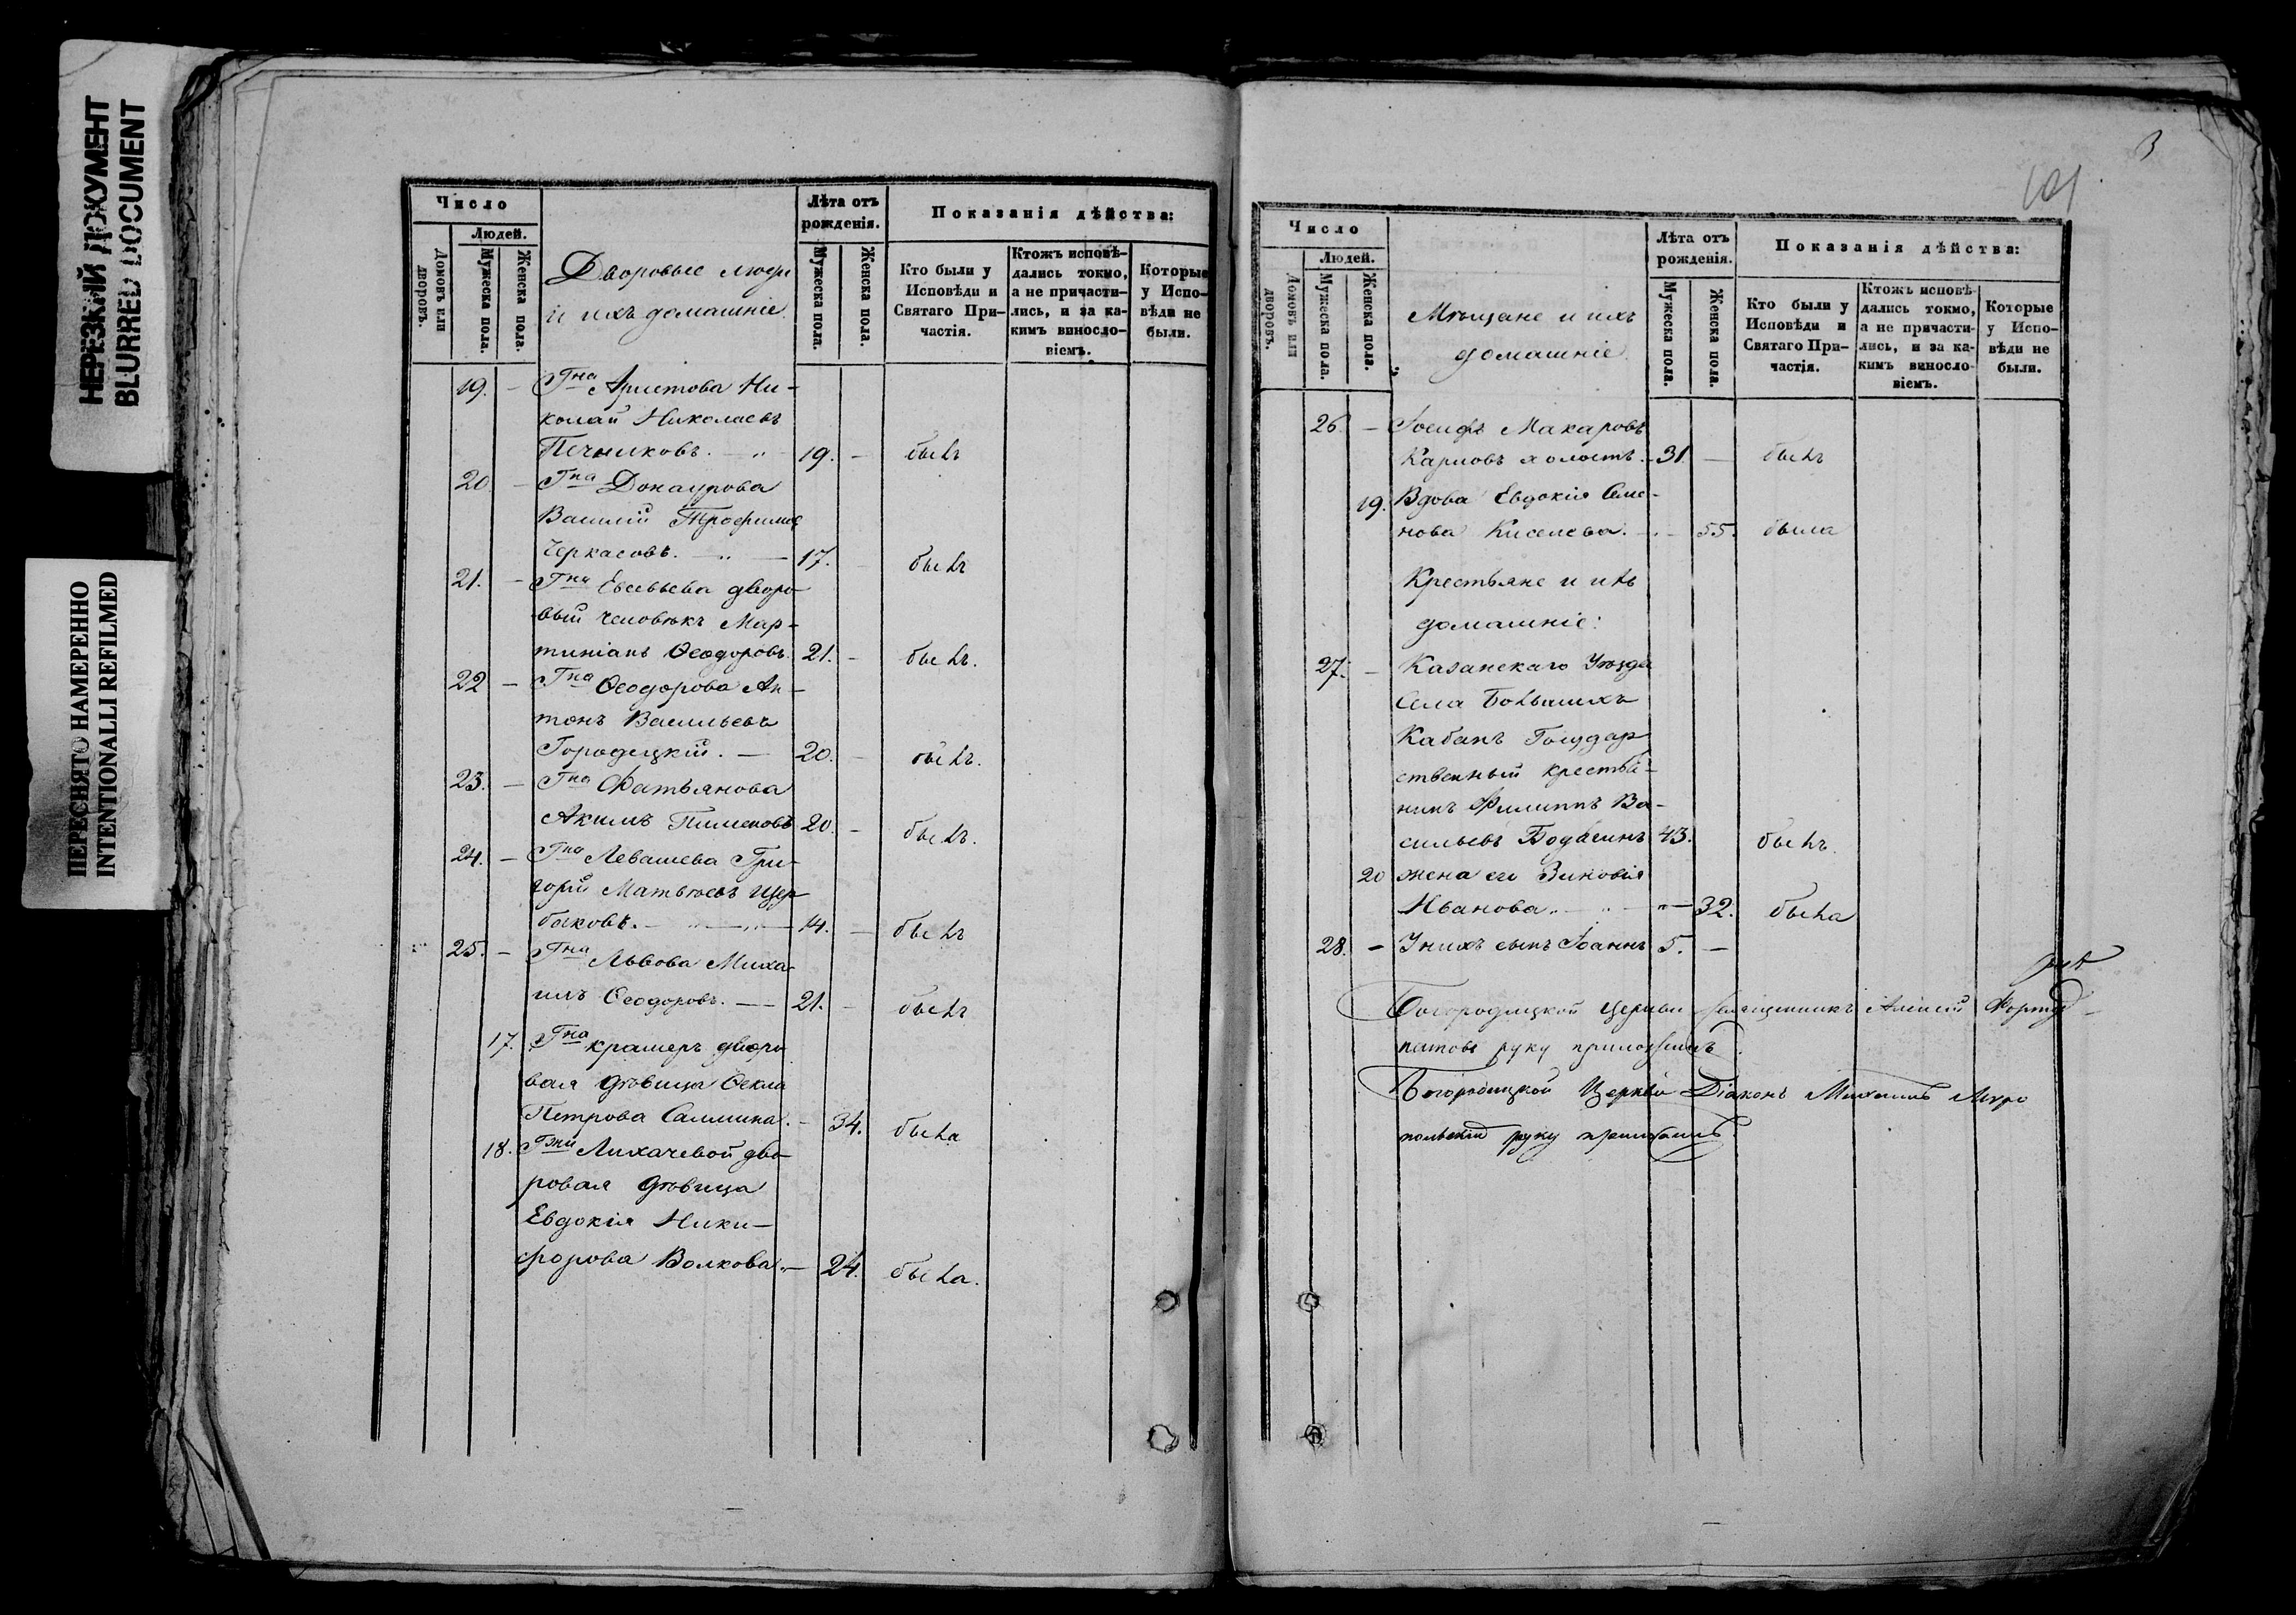 НЕРЕЗКИЙ ДОКУМЕНТ
BLURRED DOCUMENT
ПЕРЕСНЯТО НАМЕРЕННО
INTENTIONALLI REFILMED
Число
Людей.
Домовъ или дворовъ.
Мужеска пола.
Женска пола.
Дворовые люди
и ихъ домашніе.
Лѣта отъ
рожденія.
Мужеска пола.
Женска пола.
Показанія дѣйства:
Кто были у
Исповѣди и
Святаго При-
частія.
Ктожъ исповѣ-
дались токмо,
а не причасти-
лись, и за ка-
кимъ виносло-
віемъ.
Которые
у Испо-
вѣди не
были.
19. — Гна Аристова Ни-
колай Николаевъ
Печниковъ. — 19. — былъ
20 — Гна Донаурова
Василій Трофимов
Черкасовъ. — 17. былъ
21. — Гна Евсевьева дворо-
вый человѣкъ Мар-
тиніанъ Ѳеодоровъ. 21. — былъ.
22 — Гна Ѳеодорова Ан-
тонъ Васильевъ
Городецкій. — 20. — былъ.
23. — Гна Фатьянова
Акимъ Пименовъ 20. — былъ.
24. — Гна Левашева Гри-
горій Матвѣевъ Щер
баковъ. — 14. — былъ
25. — Гна Львова Миха-
илъ Ѳеодоровъ. — 21. — былъ
17. Гна Крамеръ дворо
вая дѣвица Ѳекла
Петрова Салмина. — 34. была
18. Гжи Лихачевой дво-
ровая дѣвица
Евдокія Ники-
форова Волкова. — 24. была.
3
101.
Число
Людей.
Домовъ или дворовъ.
Мужеска пола.
Женска пола.
Мѣщане и ихъ
домашніе.
Лѣта отъ
рожденія.
Мужеска пола.
Женска пола.
Показанія дѣйства:
Кто были у
Исповѣди и
Святаго При-
частія.
Ктожъ исповѣ-
дались токмо,
а не причасти-
лись, и за ка-
кимъ виносло-
віемъ.
Которые
у Испо-
вѣди не
были.
26. — Іосифъ Макаровъ
Карповъ холостъ. 31. — былъ
19. Вдова Евдокія Семе-
нова Киселева. — 55. была
Крестьяне и ихъ
домашніе:
27. — Казанскаго Уѣзда
Села Большихъ
Кабанъ Государ
ственный крестья-
нинъ Филиппъ Ва-
сильевъ Бодагинъ 43. былъ.
20 жена его Зиновія
Иванова. — 32. была
28. — У нихъ сынъ Іоаннъ 5. —
Богородицкой Церкви Священникъ Алексій
руку приложилъ
Богородицкой Церкви Діаконъ Михаилъ Миро
польскій руку приложилъ.